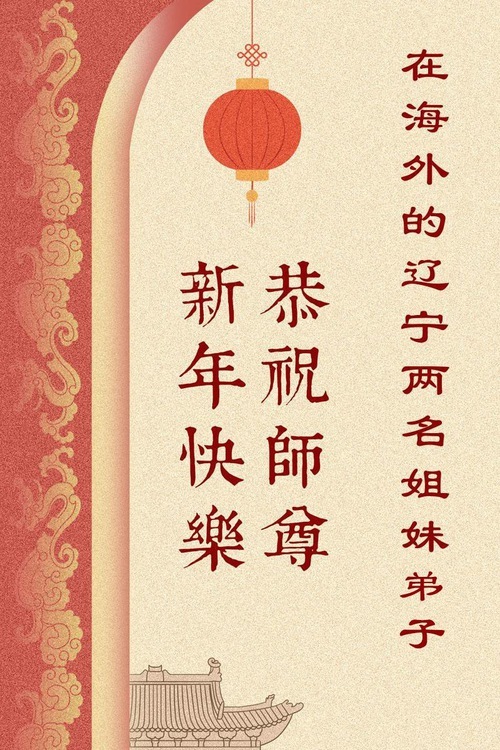 在海外的辽宁两名姐妹弟子
恭祝師尊
新年快樂